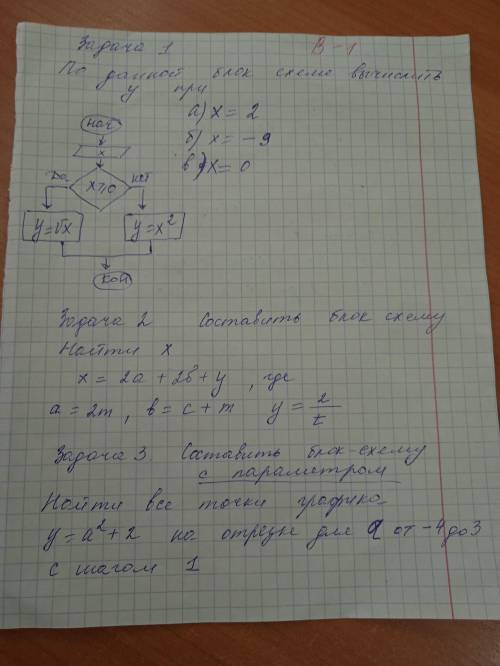 Задача 1 В-1
По данной блок схеме вычислить
y при
а) x = 2
б) x = -9
в) x = 0
нач
x
да x≥0 нет
y=√x y=x²
кон
Задача 2 Составить блок схему
Найти x
x = 2a + 2в + y , где
a = 2m , в = c + m y = 2/t
Задача 3. Составить блок-схему
с параметром
Найти все точки графика
y = a² + 2 на отрезке для a от -4 до 3
с шагом 1